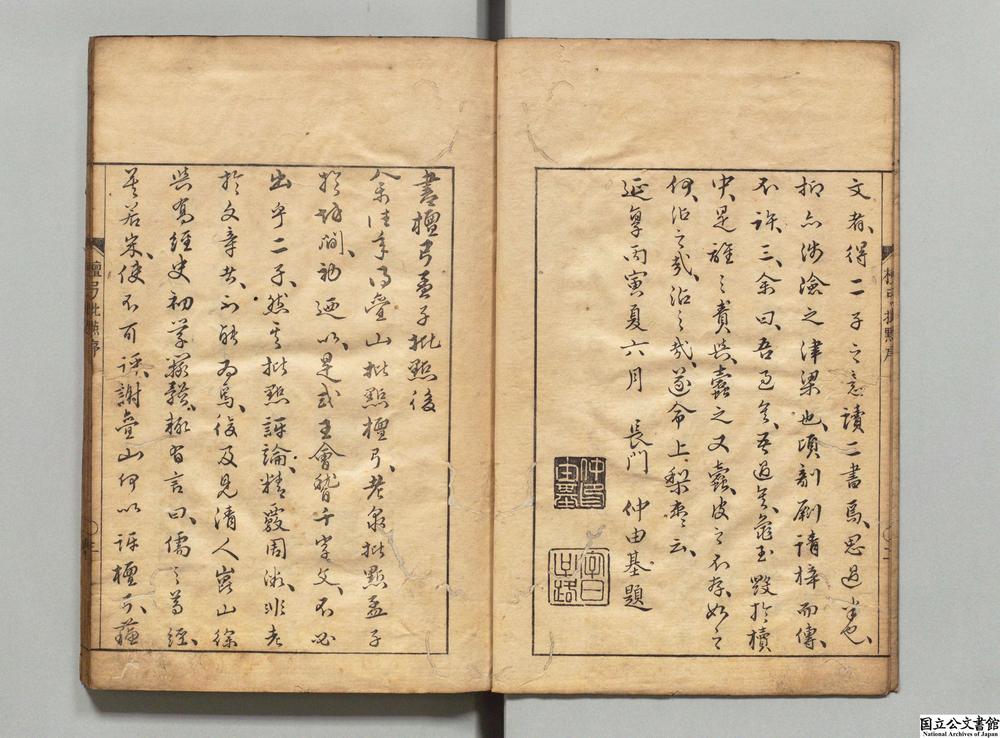 文者、得二子之意、讀二書焉、思過半也、
抑亦涉瀹之津梁也、頃剞劂請梓而傳、
不許、三、余曰、吾過矣、吾過矣、龜玉毀於櫝
中、是誰之責與、蠹之又蠹、皮之不存、如之
何、沽之哉、沽之哉、遂命上梨棗云、
延享丙寅夏六月 長門 仲由基題
書檀弓孟子批點後
余往年得疊山批點檀弓、老泉批點孟子
於坊間、初
以是式王會稽千字文、不必
出乎二子、然其批點評論、精覈周
、非老
於文章者、不能為焉、後及見清人崑山徐
與喬經史初學
、輙有言曰、儒之為經、
莫若宋、使不可誣、謝疊山何以評檀弓、蘇
檀弓批點序
檀弓批點序
国立公文書館
National Archives of Japan